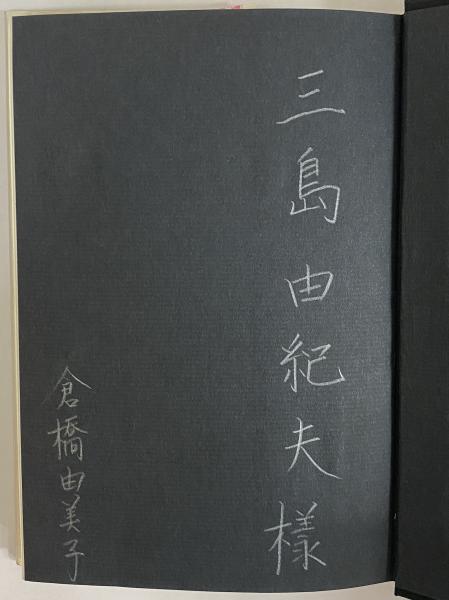 三島由紀夫様
倉橋由美子